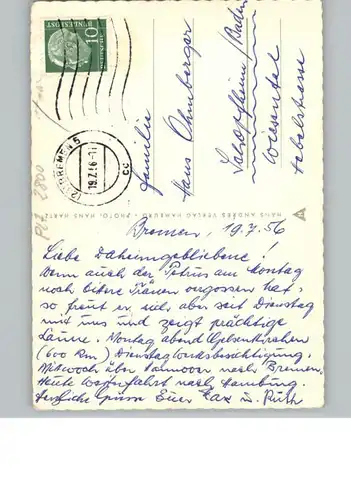 Bremen, 19.7.56
Liebe Daheimgebliebene!
Wenn auch der Petrus am Montag
noch bittere Tränen vergossen hat,
so freut er sich aber seit Dienstag
mit uns und zeigt prächtige
Laune. Montag abend Gelsenkirchen
(600 km) Dienstag Werksbesichtigung.
Mittwoch über Hannover nach Bremen.
Heute Weiterfahrt nach Hamburg.
Herzliche Grüsse Euer Max u. Ruth
Familie
Hans Ohnberger
Schopfheim/Baden
Wiesental
Hebelstrasse
HANS ANDRES VERLAG HAMBURG · PHOTO: HANS HARTZ
10
DEUTSCHE
BUNDESPOST
BREMEN 5
19.7.56
cc
PLZ 2800